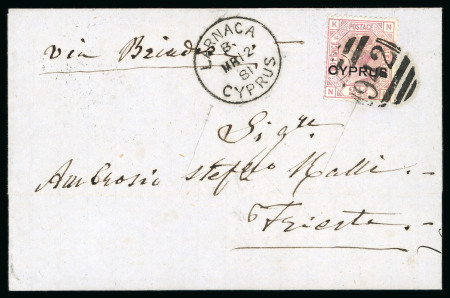 via Brindisi
LARNACA
B
MR 12
81
CYPRUS
K N
POSTAGE
CYPRUS
N K
942
Sigre
Ambrosio Stefo Ralli.
Trieste.